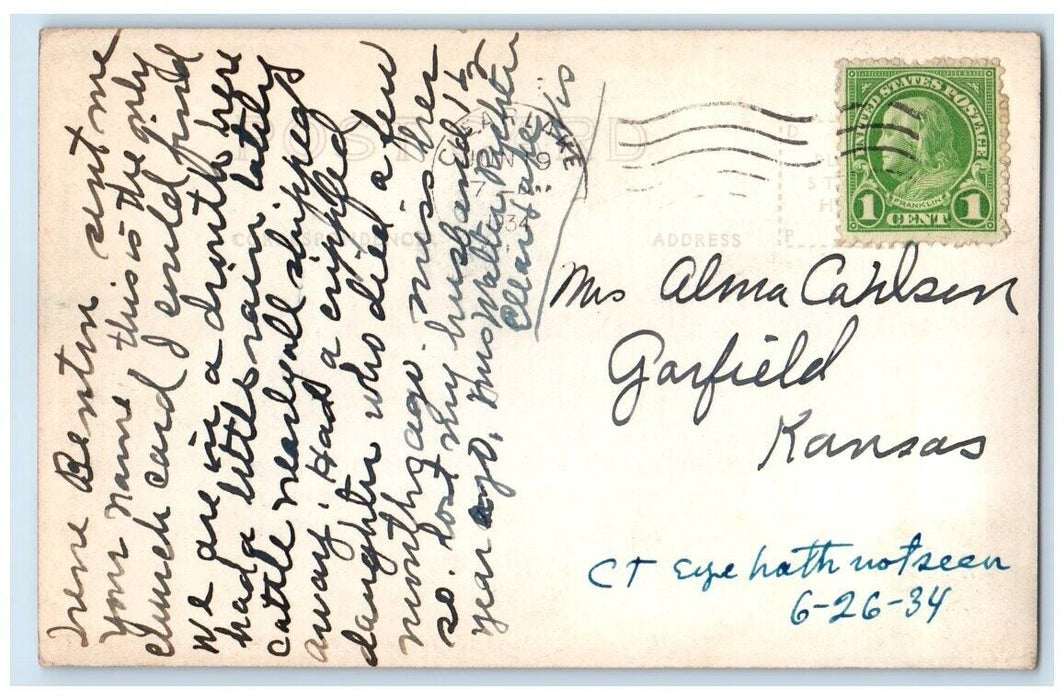 Irene Benton sent me
your name this is the only
church card I could find
We are in a drouth here
had a little rain lately
cattle nearly all shipped
away. Had a crippled
daughter who died a few
months ago. miss her
so. Lost my husband 1½
year ago, Mrs Walter
Clear Lake Wis
POST CARD
CLEAR LAKE
JUN 19
7
1934
CORRESPONDENCE
ADDRESS
UNITED STATES POSTAGE
FRANKLIN
1 CENT 1
Mrs Alma Carlson
Garfield
Kansas
CT Eye hath not seen
6-26-34